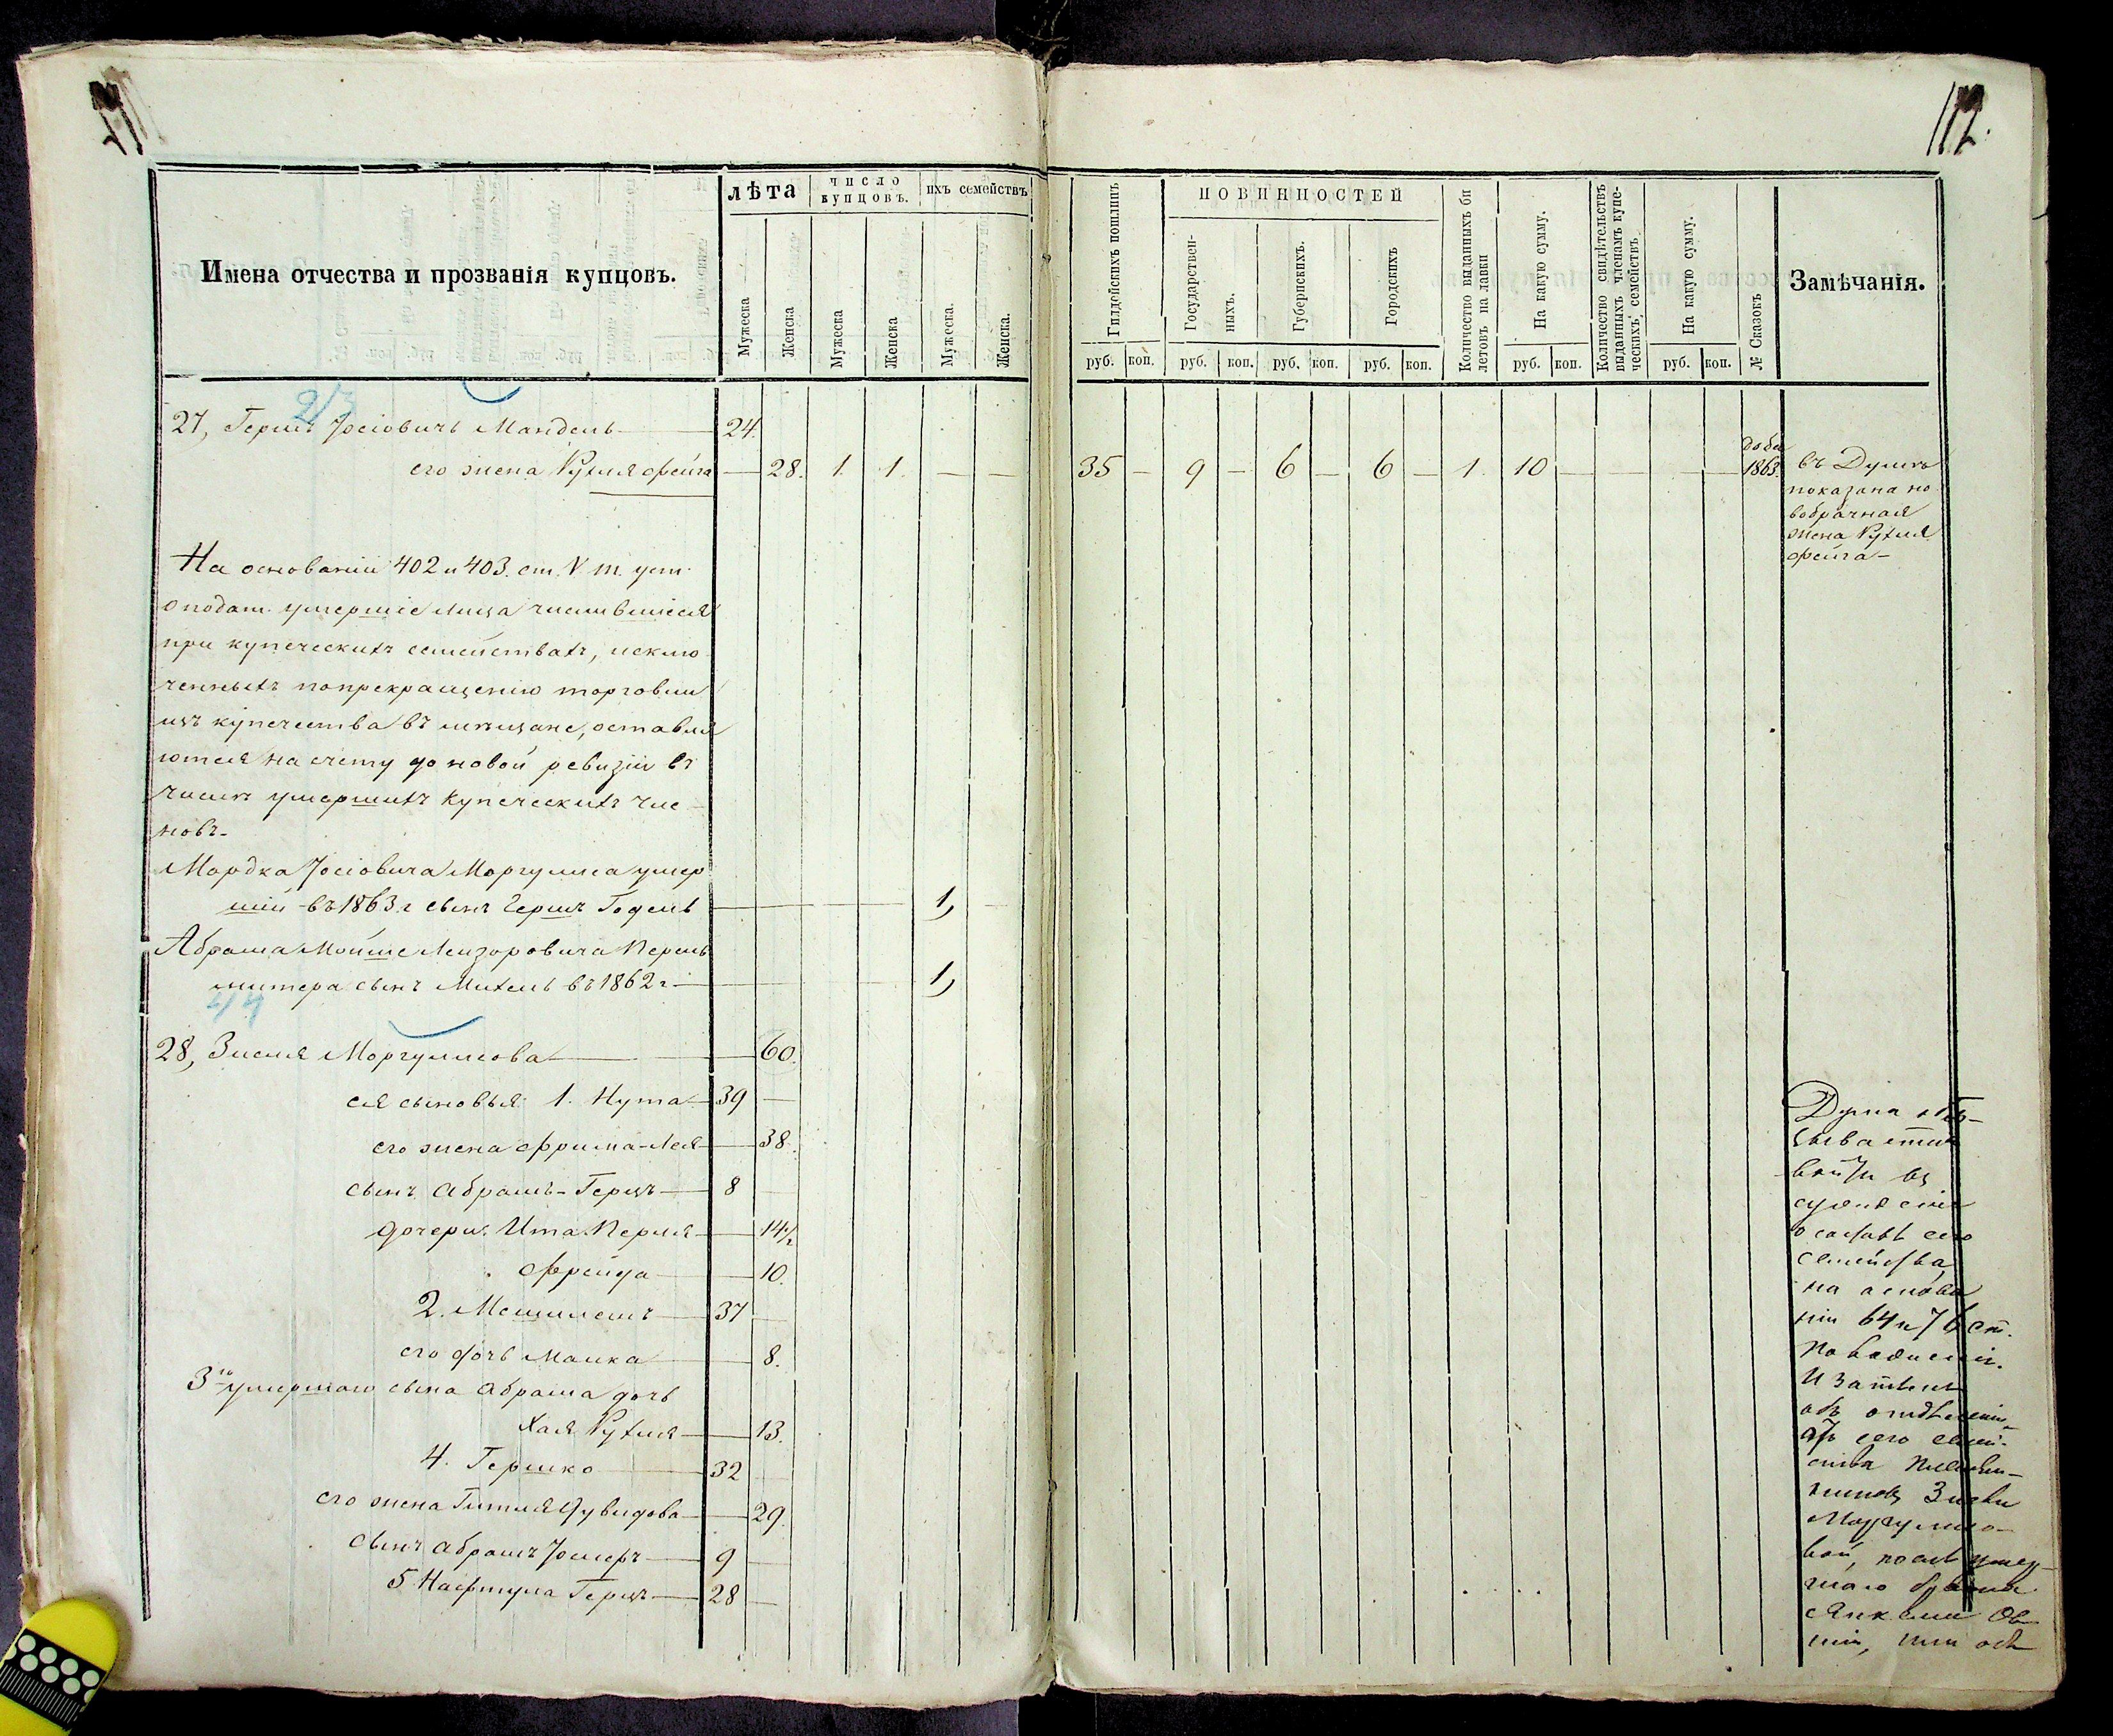 112.
Имена отчества и прозванія купцовъ.
лѣта
Мужеска
Женска
число купцовъ.
Мужеска
Женска
ихъ семействъ
Мужеска.
Женска.
Гильдейскихъ пошлинъ
руб. коп.
ПОВИННОСТЕЙ
Государственныхъ.
руб. коп.
Губернскихъ.
руб. коп.
Городскихъ
руб. коп.
Количество выданныхъ би
летовъ на лавки
На какую сумму.
руб. коп.
Количество свидѣтельствъ
выданныхъ членамъ купе-
ческихъ семействъ
На какую сумму.
руб. коп.
№ Сказокъ
Замѣчанія.
27, Гершъ Іосіовичъ Мандель 24.
его жена Рухля Фейга — 28. 1. 1. — — 35 — 9 — 6 — 6 — 1. 10 — — — 1863.
въ Думѣ
показана но
вобрачная
жена Рухля
Фейга —
На основаніи 402 и 403. ст. V. т. уст.
о подат. умершіе лица числившіеся
при купеческихъ семействахъ, исклю
ченныхъ по прекращенію торговли
изъ купечества въ мѣщане, оставля
ются на счету до новой ревизіи въ
числѣ умершихъ купеческихъ чле
новъ.
Мордка Іосіовича Моргулиса умер
шій въ 1863 г сынъ Гершъ Годель — 1,
Абрама Мойше Лейзоровича Перель
митера сынъ Михель въ 1862 г — 1,
28, Зисля Моргулисова — 60.
ея сыновья: 1. Нута 39 —
его жена Фрима-Лея — 38.
сынъ Абрамъ-Герцъ 8 —
дочери: Ита Перля — 14½
Фрейда — 10.
2. Мешилемъ 37 —
его дочь Малка — 8.
3го умершаго сына Абрама дочь
Хая Рухля — 13.
4. Гершко 32 —
его жена Гитля Дувидова — 29.
сынъ Абрамъ Іосифъ 9 —
5. Нафтула Герцъ 28 —
Дума
войти въ
сужденіе
о составѣ сего
семейства,
на основа
ніи 64 и 76 ст.
И затѣмъ
объ отдѣленіи
отъ сего семей-
ства
Зисли
Моргулисо-
вой, послѣ умер
шаго